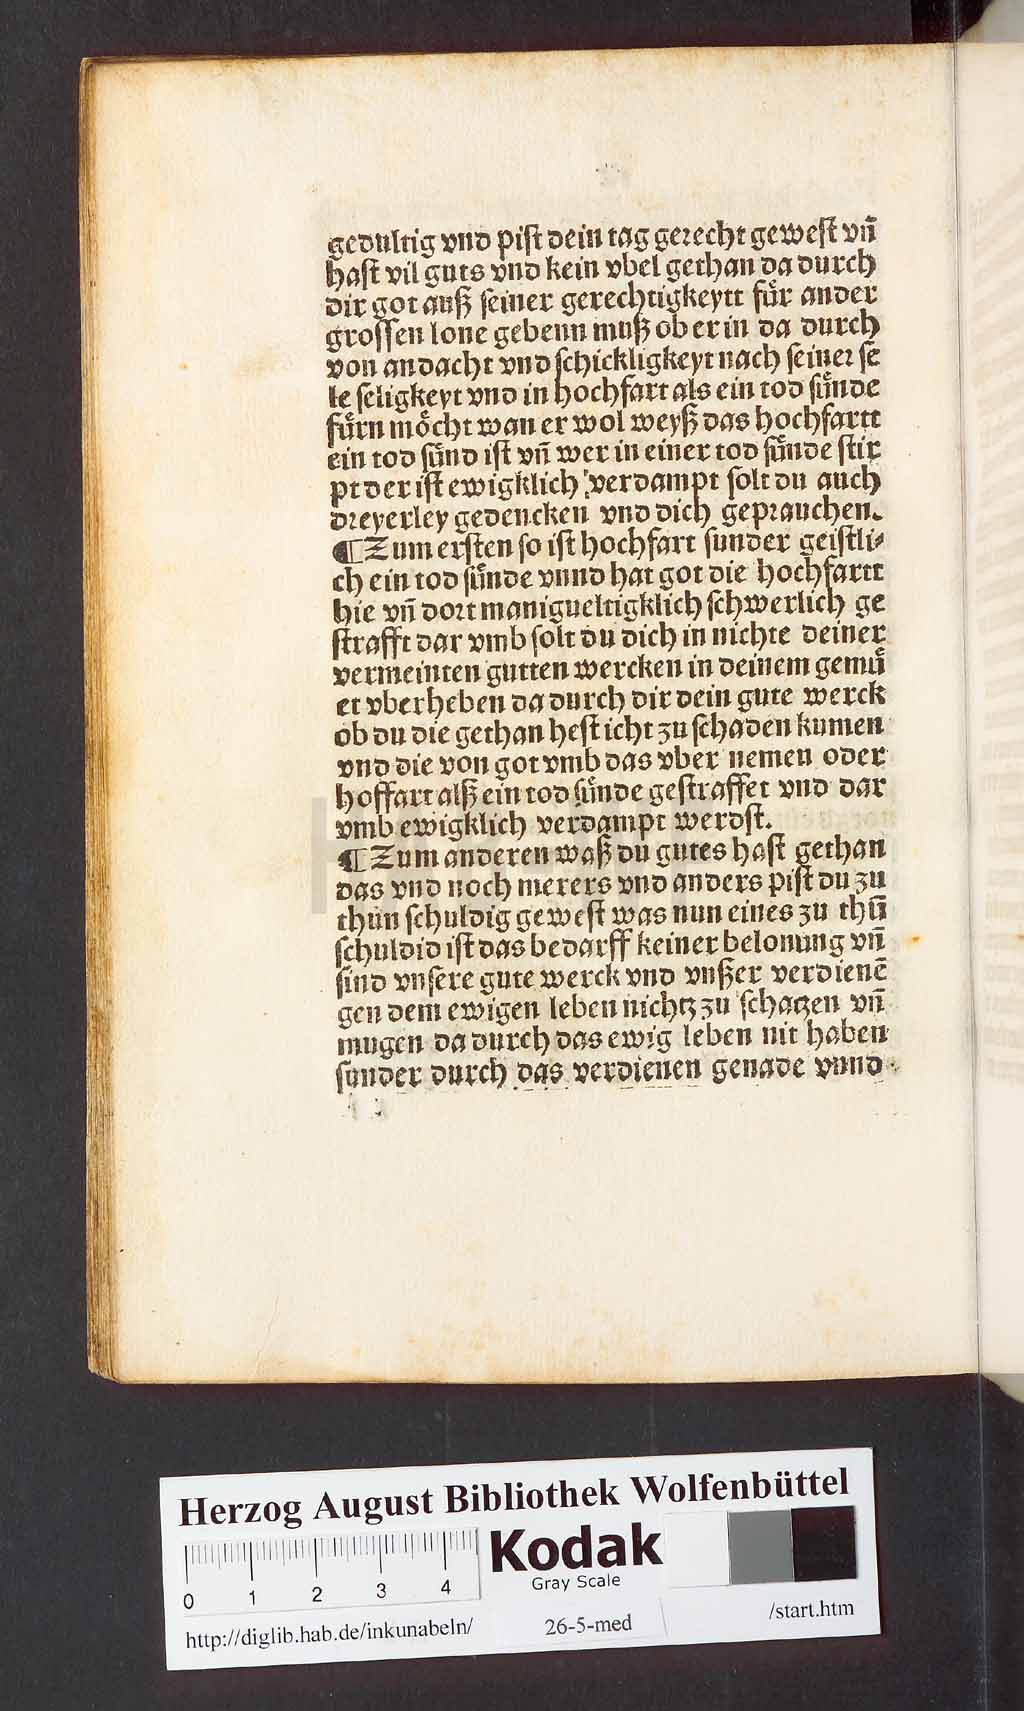 gedultig vnd pist dein tag gerecht gewest vn̄
hast vil guts vnd kein vbel gethan da durch
dir got auß seiner gerechtigkeytt fuͤr ander
grossen lone gebenn muß ob er in da durch
von andacht vnd schickligkeyt nach seiner se
le seligkeyt vnd in hochfart als ein tod suͤnde
fuͤrn moͤcht wan er wol weyß das hochfartt
ein tod suͤnd ist vn̄ wer in einer tod suͤnde stir
pt der ist ewigklich verdampt solt du auch
dreyerley gedencken vnd dich geprauchen.
¶ Zum ersten so ist hochfart sunder geistli⸗
ch ein tod suͤnde vnnd hat got die hochfartt
hie vn̄ dort manigueltigklich schwerlich ge
strafft dar vmb solt du dich in nichte deiner
vermeinten gutten wercken in deinem gemuͤ
et vberheben da durch dir dein gute werck
ob du die gethan hest icht zu schaden kumen
vnd die von got vmb das vber nemen oder
hoffart alß ein tod suͤnde gestraffet vnd dar
vmb ewigklich verdampt werdst.
¶ Zum anderen waß du gutes hast gethan
das vnd noch merers vnd anders pist du zu
thun schuldig gewest was nun eines zu thū
schuldid ist das bedarff keiner belonung vn̄
sind vnsere gute werck vnd vnßer verdienē
gen dem ewigen leben nichtz zu schatzen vn̄
mugen da durch das ewig leben nit haben
sunder durch das verdienen genade vnnd
Herzog August Bibliothek Wolfenbüttel
Kodak
Gray Scale
0 1 2 3 4
http://diglib.hab.de/inkunabeln/ 26-5-med /start.htm